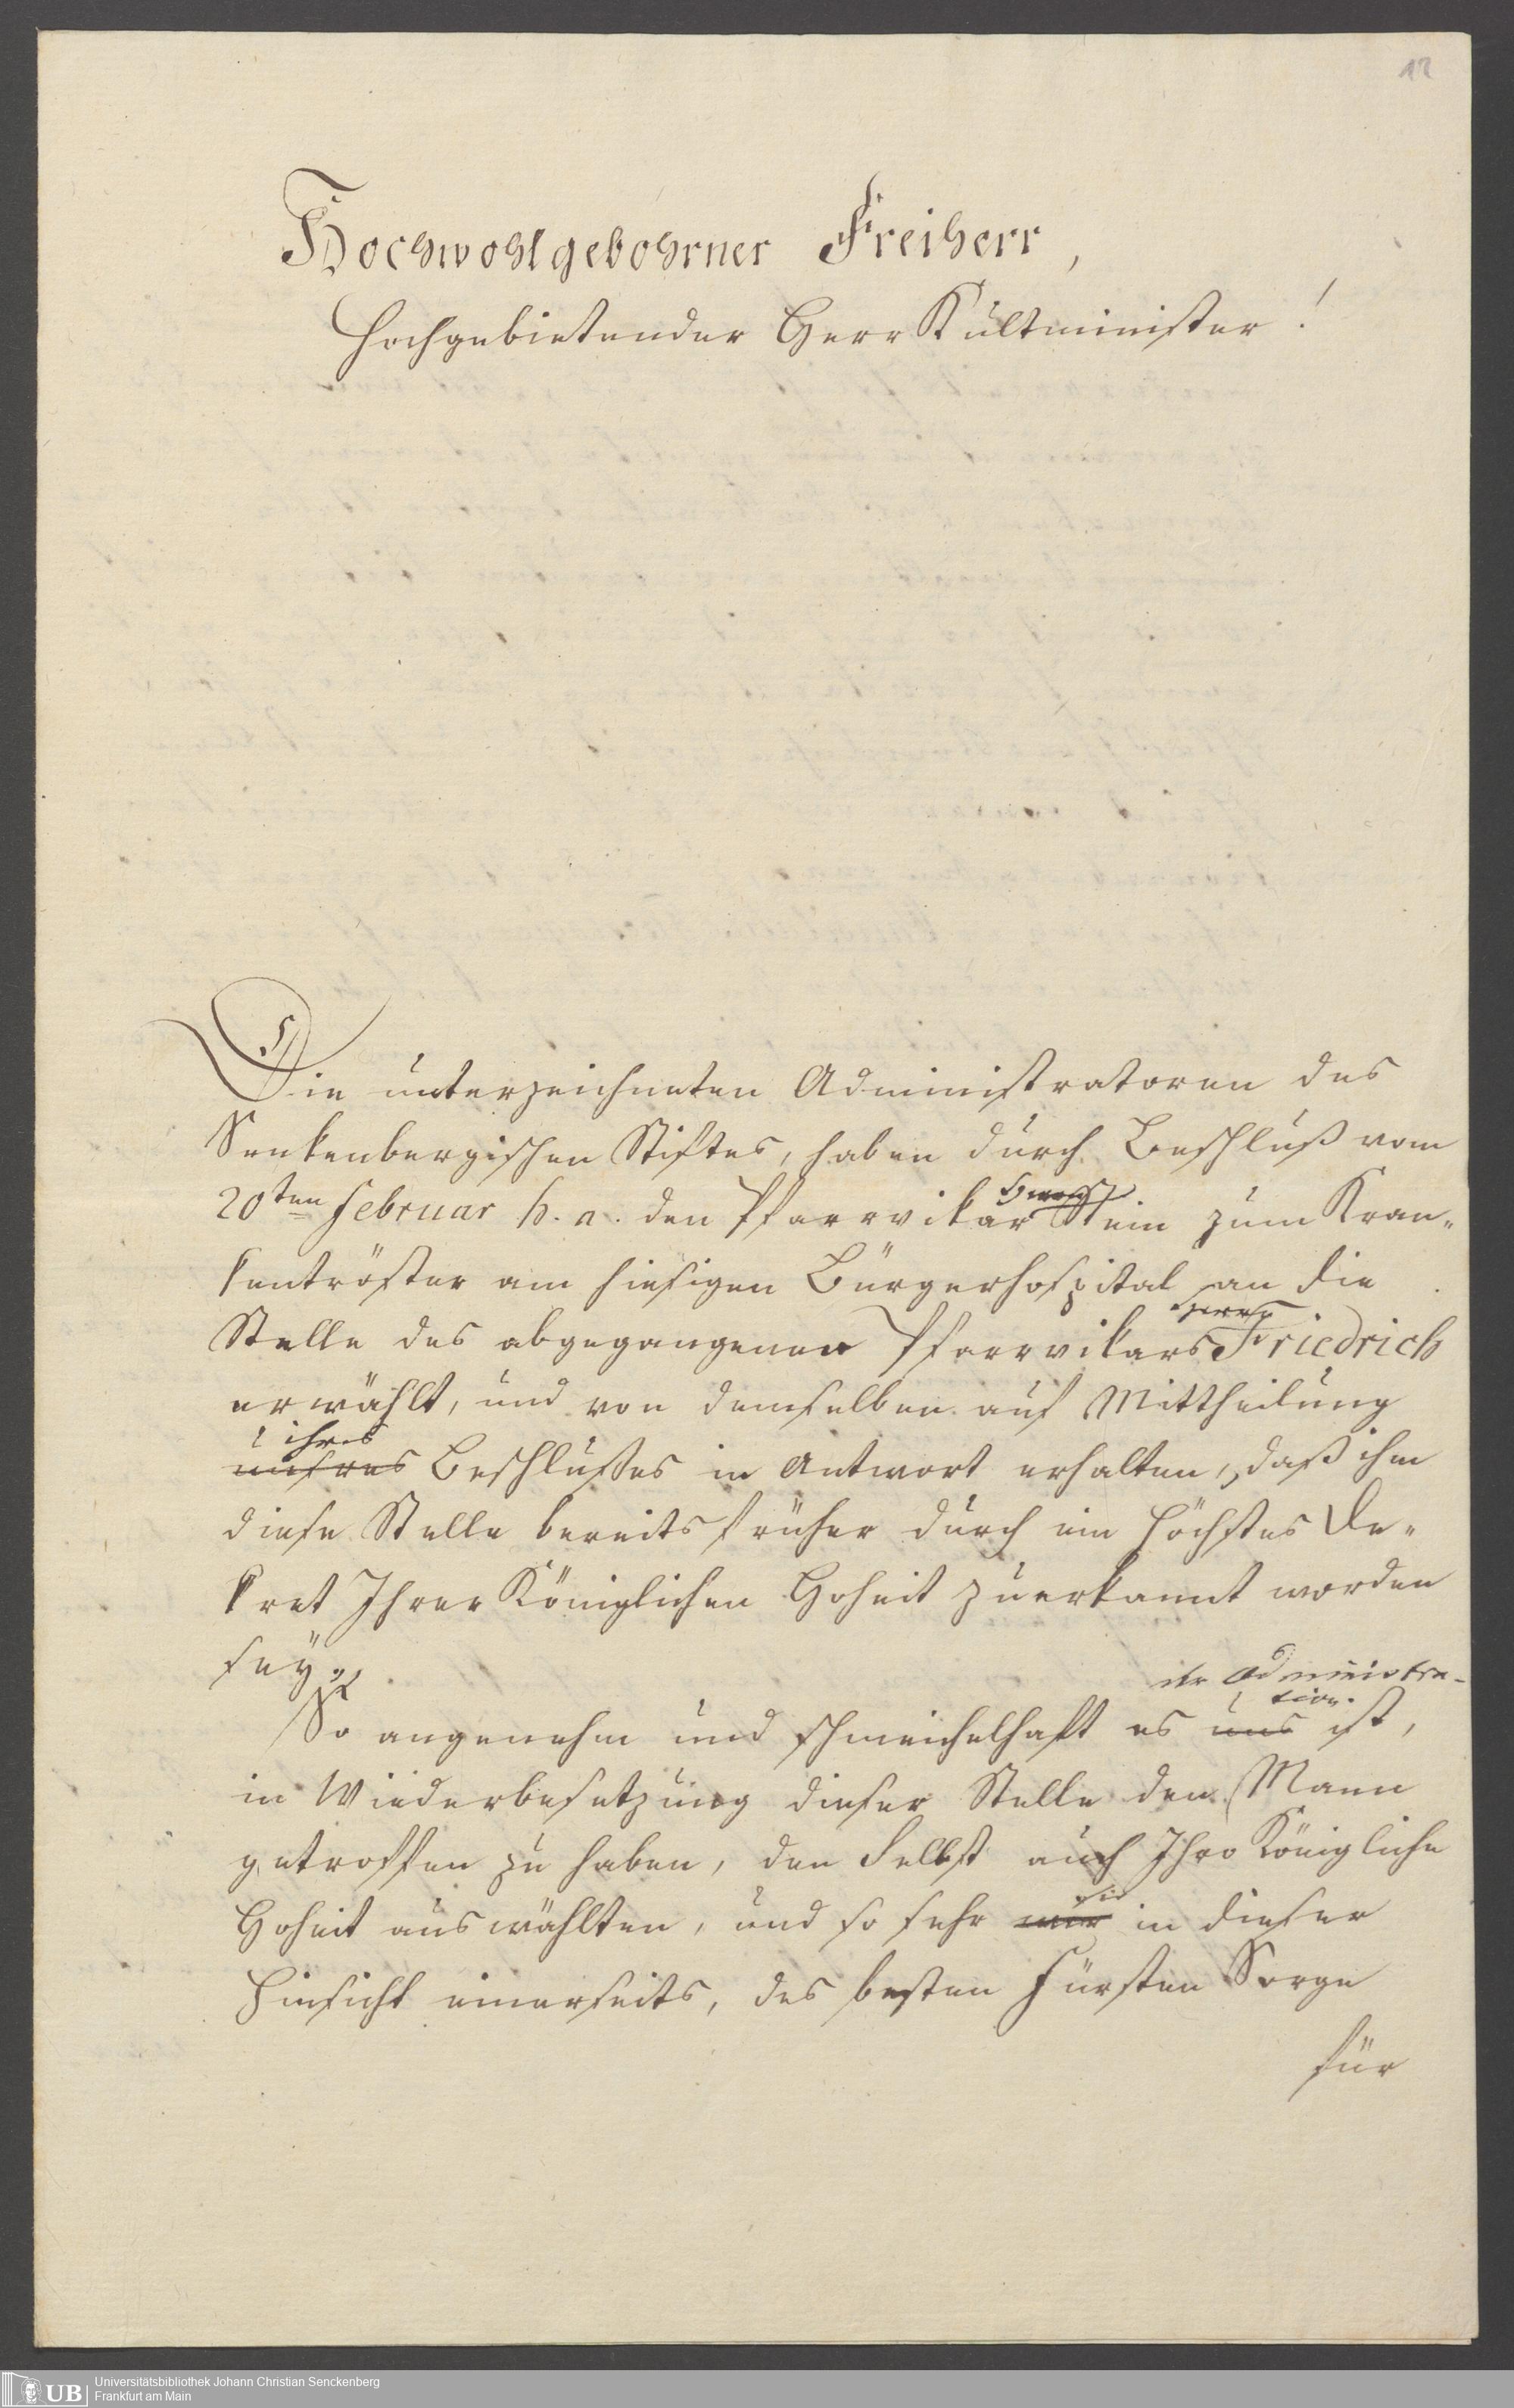 12
Hochwohlgebohrner Freiherr,
Hochgebietender Herr Kultminister!
Die unterzeichneten Administratoren des
Senkenbergischen Stiftes, haben durch Beschluß vom
20ten Februar h. a. den Pfarrvikar Stein zum Kran-
kentröster am hiesigen Bürgerhospital an die
Herrn
Stelle des abgegangenen Pfarrvikars Friedrich
erwählt, und von demselben auf Mittheilung
ihres
unsres Beschlußes in Antwort erhalten, daß ihm
diese Stelle bereits früher durch ein höchstes De-
kret Ihrer Königlichen Hoheit zuerkannt worden
sey.
der Administra-
tion
So angenehm und schmeichelhaft es uns ist,
in Wiederbesetzung dieser Stelle den Mann
getroffen zu haben, den Selbst auch Ihro Königliche
sie
Hoheit auswählten, und so sehr wir in dieser
Hinsicht einerseits, des besten Fürsten Sorge
für
UB
Universitätsbibliothek Johann Christian Senckenberg
Frankfurt am Main